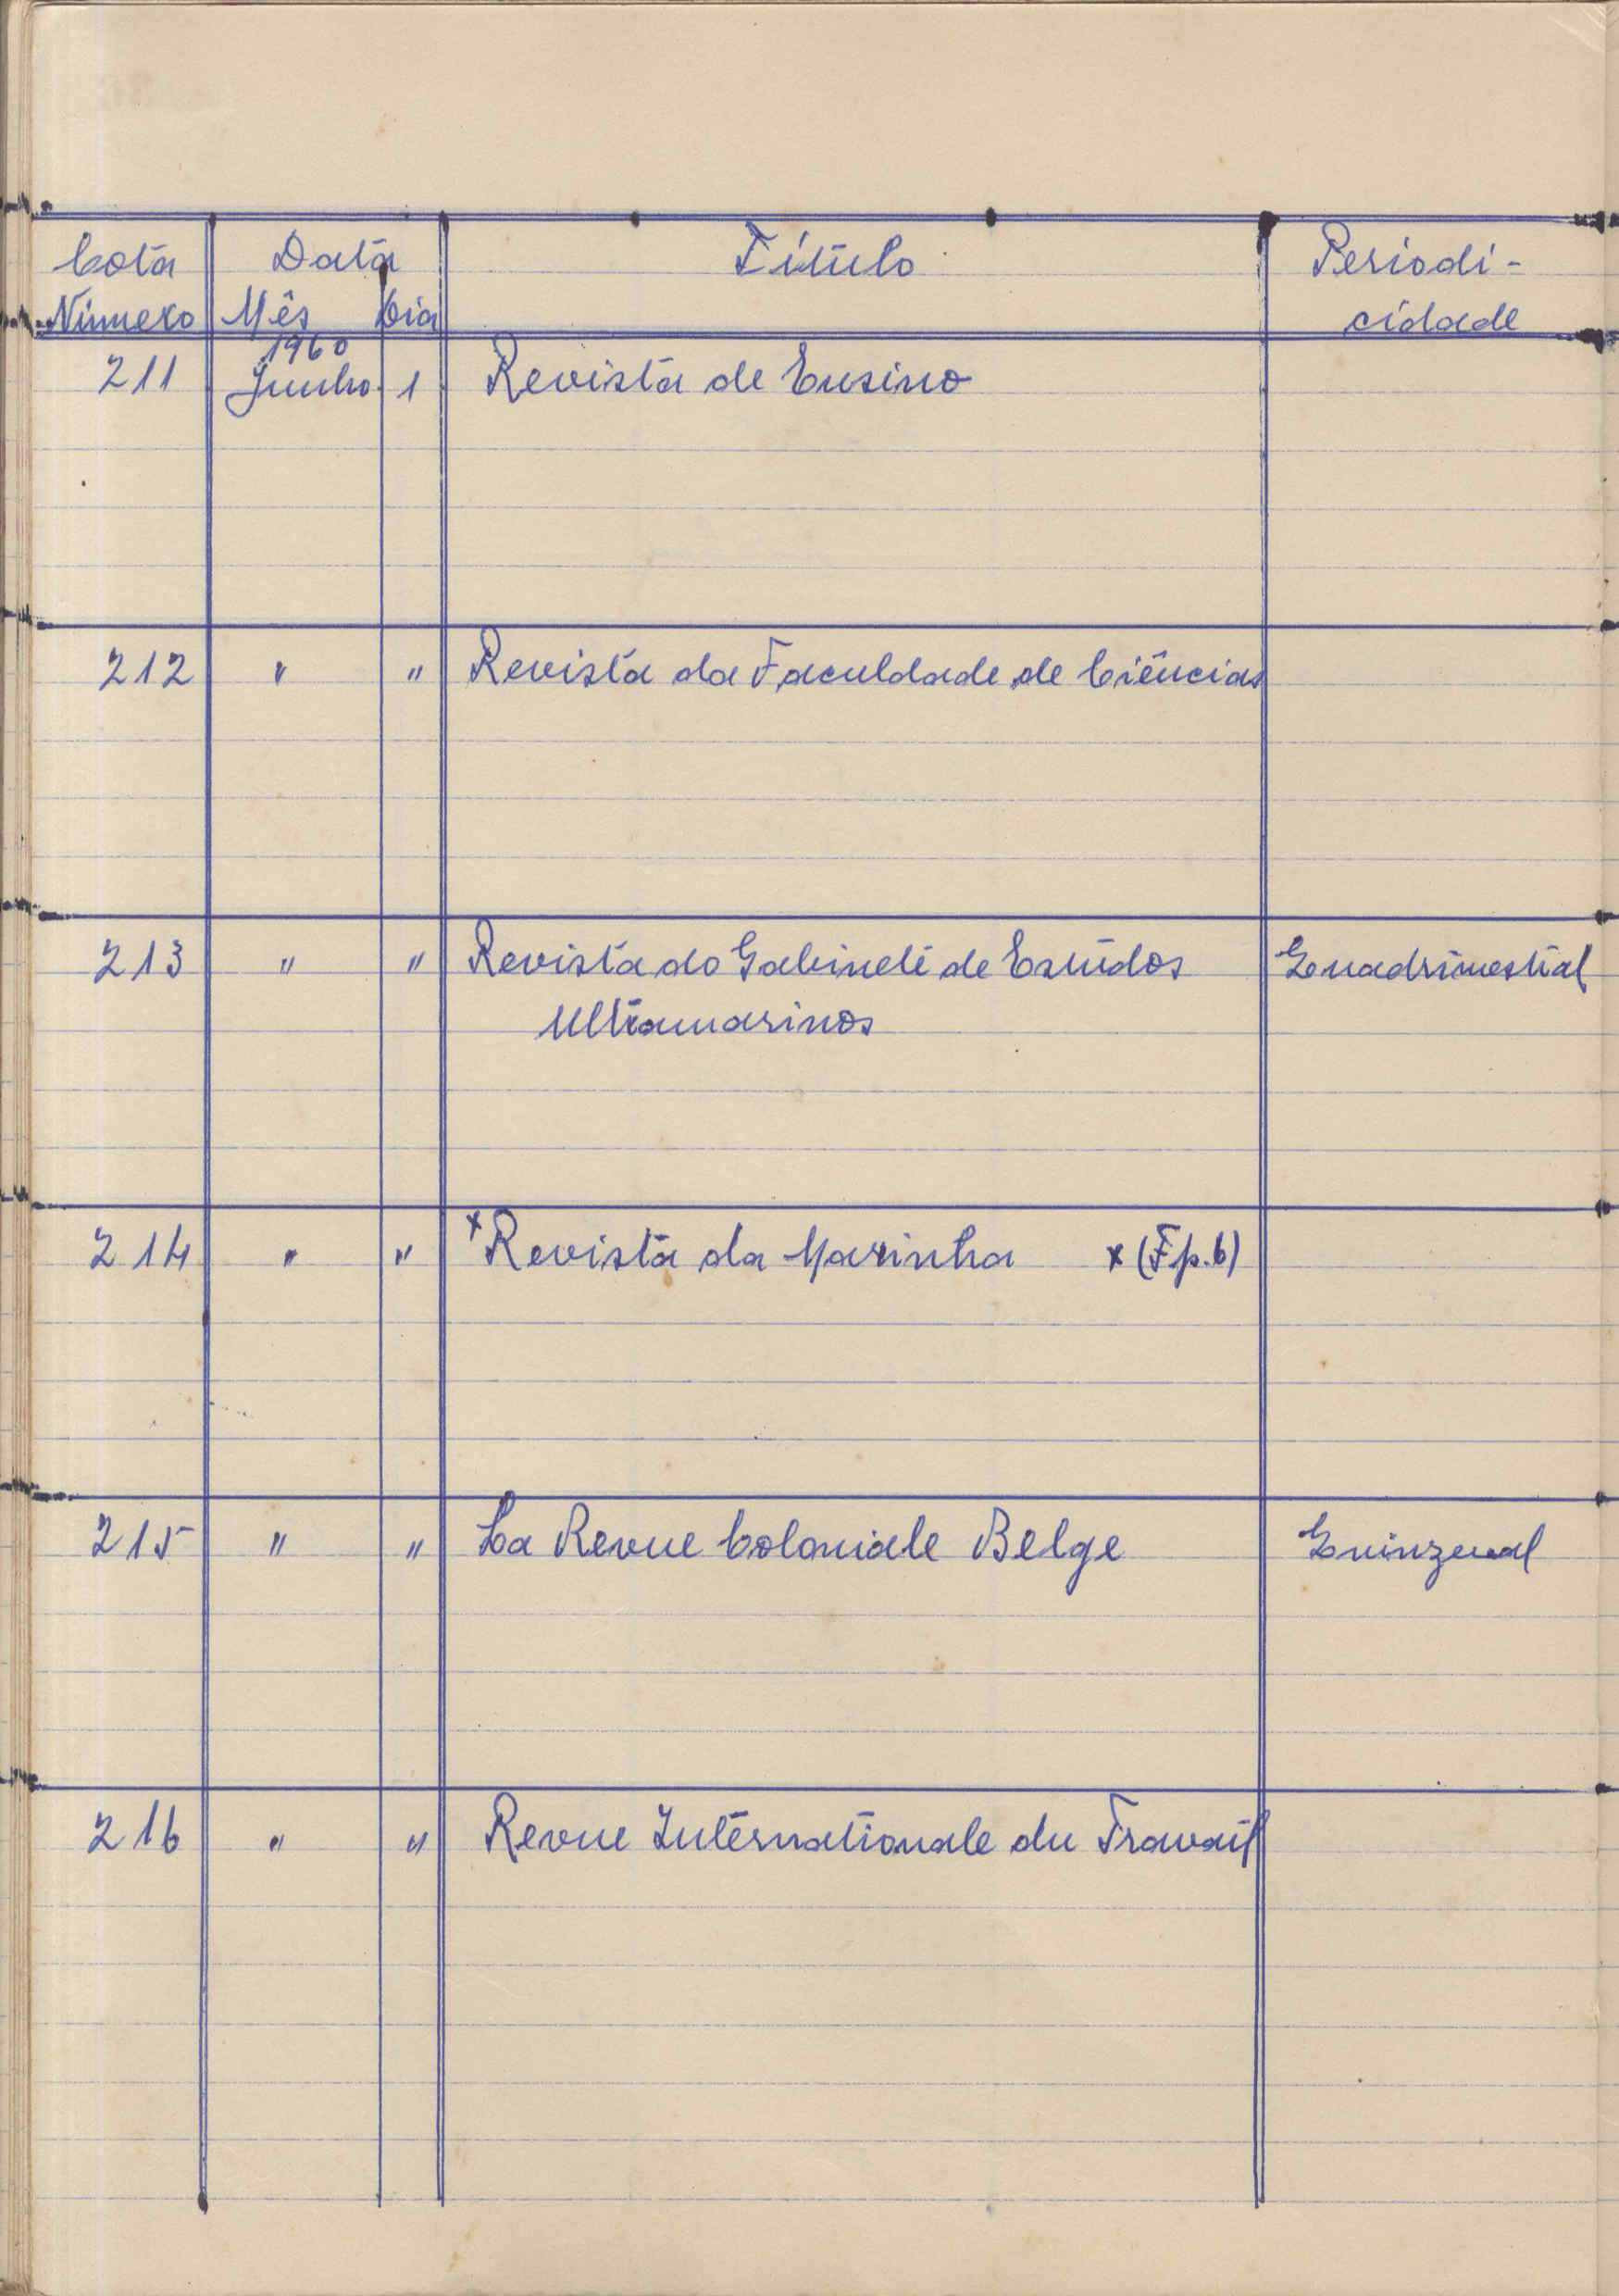 Cota Data Título Periodi-
Número Mês Dia cidade
1960
211 Junho 1 Revista de Ensino
212 " " Revista da Faculdade de Ciências
213 " " Revista do Gabinete de Estudos Quadrimestral
Ultramarinos
214 " " x Revista da Marinha x (F p. 6)
215 " " La Revue Coloniale Belge Quinzenal
216 " " Revue Internationale du Travail